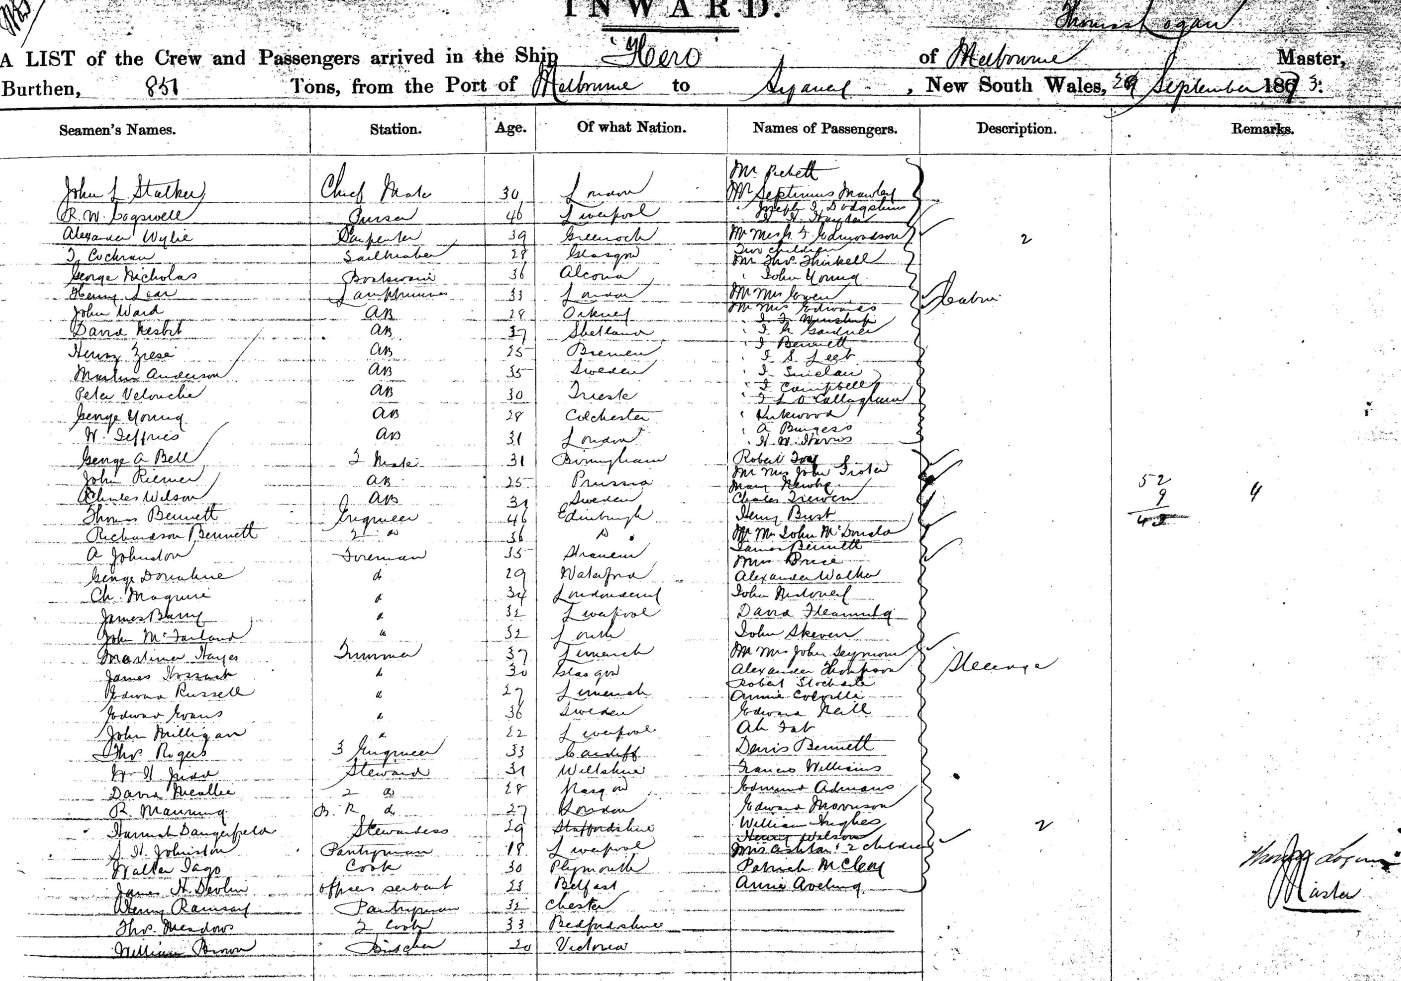 INWARD.
Thomas Logan
A LIST of the Crew and Passengers arrived in the Ship "Hero" of Melbourne Master,
Burthen, 851 Tons, from the Port of Melbourne to Sydney, New South Wales, 29 September 1873.
Seamen's Names. Station. Age. Of what Nation. Names of Passengers. Description. Remarks.
Mr Pickett
John L Stalker Chief Mate 30 London Mr Septimus Mawley
R. W. Cogswell Purser 46 Liverpool
Alexander Wylie Carpenter 39 Greenock Edmondson 2
Two children
T Cochran Sailmaker 28 Glasgow Mr Thos Thirkell
George Nicholas Boatswain 36 John Young
Henry Lamptrimmer 33 London Mr Mrs Cabin
John Ward AB 28 Orkney Mr Mrs Edwards
David Nesbit AB 37 Shetland " J Gardner
" J Bennett
Henry AB 25 Bremen " J S
Martin Anderson AB 35 Sweden " J Sinclair
Peter AB 30 Trieste " J Campbell
" J L O Callaghan
George Young AB 28 Colchester " Kirkwood
" A Burgess
W. Jeffries AB 31 London " H W Harris
George A Bell 2 Mate 31 Birmingham Robert
Mr Mrs John
John Riemer AB 25 Prussia Mary 52
Charles Wilson AB 31 Sweden Charles 9
Thomas Bennett Engineer 46 Edinburgh Henry 43
Richardson Bennett 2 do 36 Do Mr Mrs John McDonald
James Bennett
A Johnston Foreman 35 Mrs Price
George Donahue do 29 Waterford Alexander Walker
Ch. Maguire " 34 Londonderry John
James Barry " 32 Liverpool David Flemming
John McFarland " 32 Louth John
Hayes Trimmer 37 Limerick Mr Mrs John Seymour
James " 30 Glasgow Alexander Thompson Steerage
Robert
Edward Russell " 27 Limerick Annie
Edward Evans " 36 Sweden Edward Neill
John Milligan " 22 Liverpool Ah
Thos Rogers 3 Engineer 33 Cardiff Bennett
W H Judd Steward 31 Wiltshire Francis Williams
David 2 do 28 Glasgow Edmund
R. Manning do 27 London Edward Morrison
Hannah Dangerfield Stewardess 29 Staffordshire William Hughes 2
Henry Wilson
S H Johnston Pantryman 18 Liverpool Mrs Ashton & 2 children
Walter Jago Cook 30 Plymouth Patrick McClay
James H Devlin officers servant 23 Belfast Annie Aveling
Henry Ramsay Pantryman 32 Chester
Thos Meadows 2 Cook 33 Bedfordshire
William Brown Butcher 20 Victoria
Thomas Logan
Master